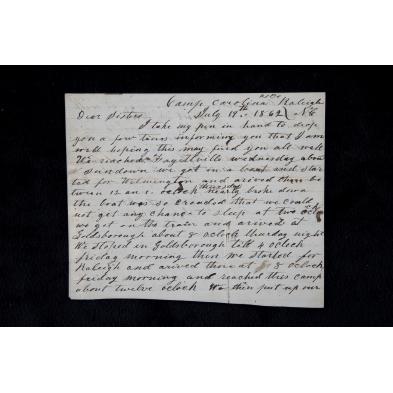 Camp Carolina near Raleigh
July 19th 1862 N C
Dear Sisters
I take my pen in hand to drop
you a few lines informing you that I am
well hoping this may find you all well
We reached Fayettville wednesday about
sundown we got on a boat and star
ted for Wilmington and arived there be
tween 12 an 1 oclock thursday nearly broke down
the boat was so crouded that we could
not get any chance to sleep at two oclock
we got on the train and arived at
Goldsborough about 8 oclock thurday night
We stoped in Goldsborough till 4 oclock
friday morning then we started for
Raleigh and arived there at 8 oclock
friday morning and reached this camp
about twelve oclock We then put up our